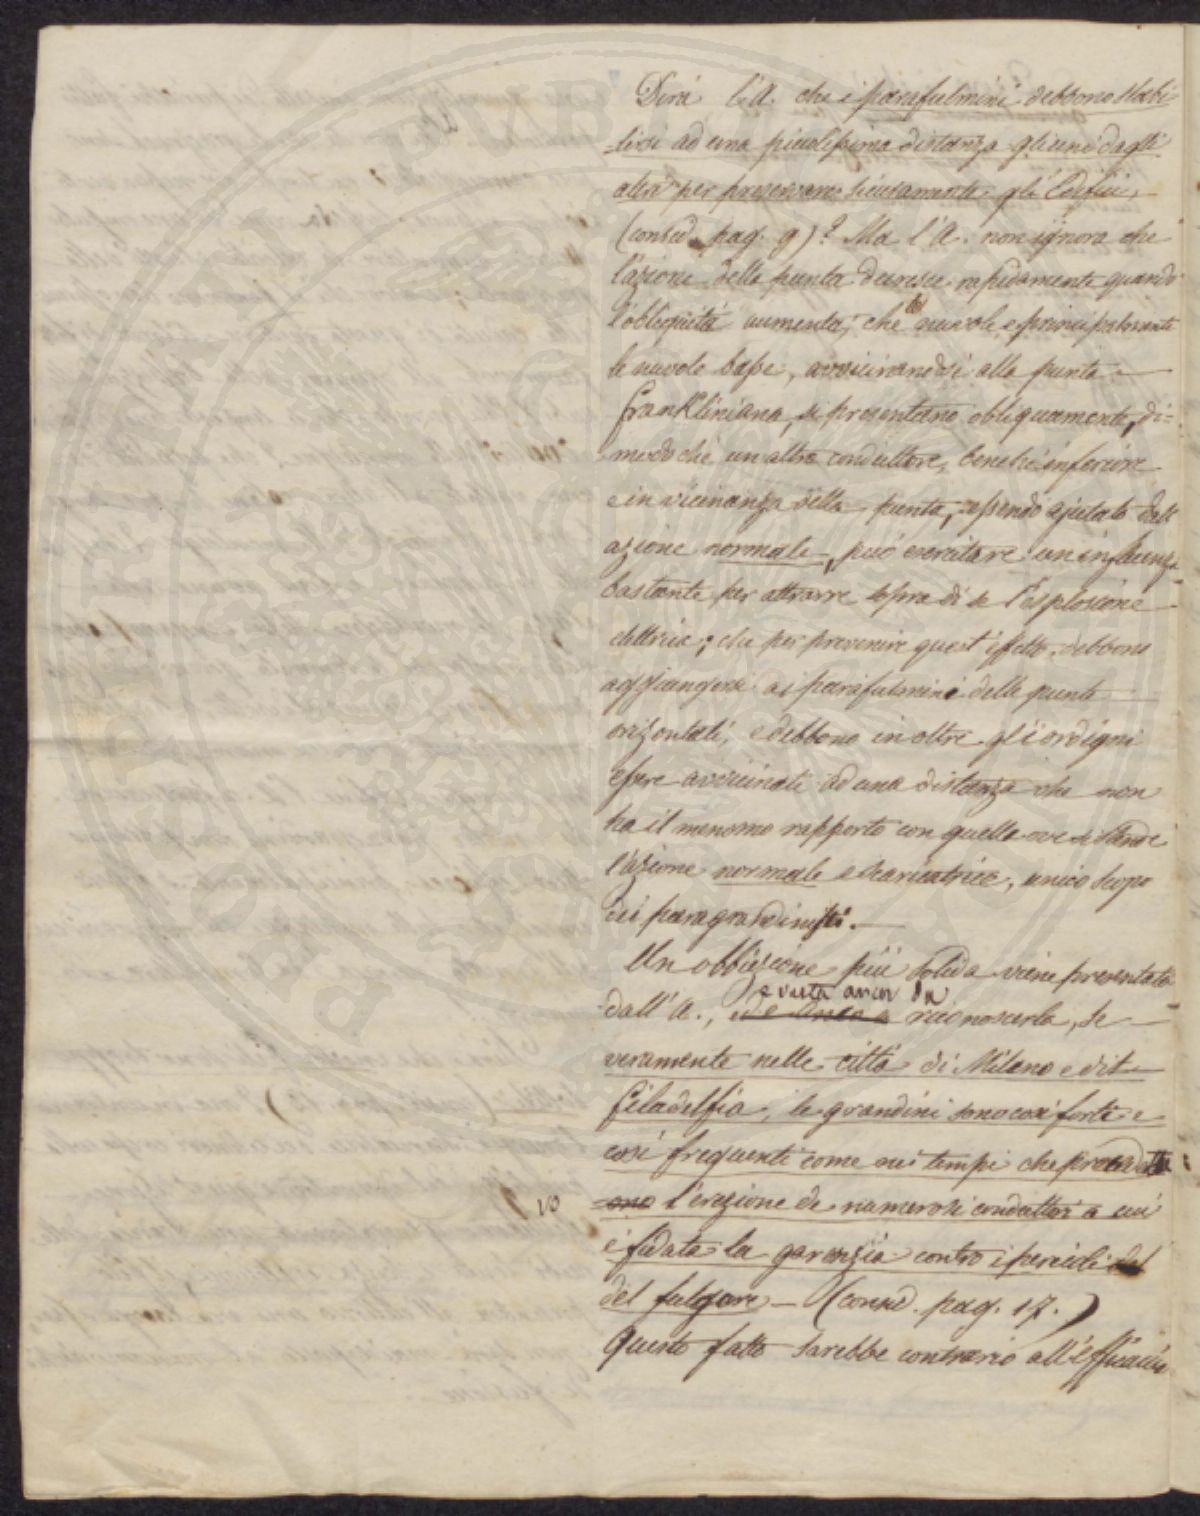 Dirà l'A. che i parafulmini debbono stabi
lirsi ad una picciolissima distanza gli uni dagli
altri per preservare sicuramente gli Edifici,
(consid. pag. 9)? Ma l'A. non ignora che
l'azione della punta decresce rapidamente quando
l'obliquità aumenta; che le nuvole, e principalmente
le nuvole basse, avvicinandosi alla punta
frankliniana, si presentano obliquamente, di=
modochè un altro conduttore, benchè inferiore
e in vicinanza della punta, essendo ajutato dall'
azione normale, può esercitare un influenza
bastante per attrarre sopra di se l'esplosione
elettrica; che per prevenire quest'effetto debbono
aggiungersi ai parafulmini delle punte
orizontali, e debbono inoltre gli ordigni
essere avvicinati ad una distanza che non
ha il menomo rapporto con quella ove si stende
l'azione normale e scaricatrice, unico scopo
dei paragrandinisti.
Un obbiezione più solida viene presentata
e resta ancor da
dall'A., riconoscerla, se
veramente nelle città di Milano e di
Filadelfia, le grandini sono così forti e
così frequenti come nei tempi che preced
10
l'erezione de numerosi conduttori a cui
è fidata la garanzia contro i pericoli del
del fulgore — (consid. pag. 17.)
Questo fatto sarebbe contrario all'efficacia